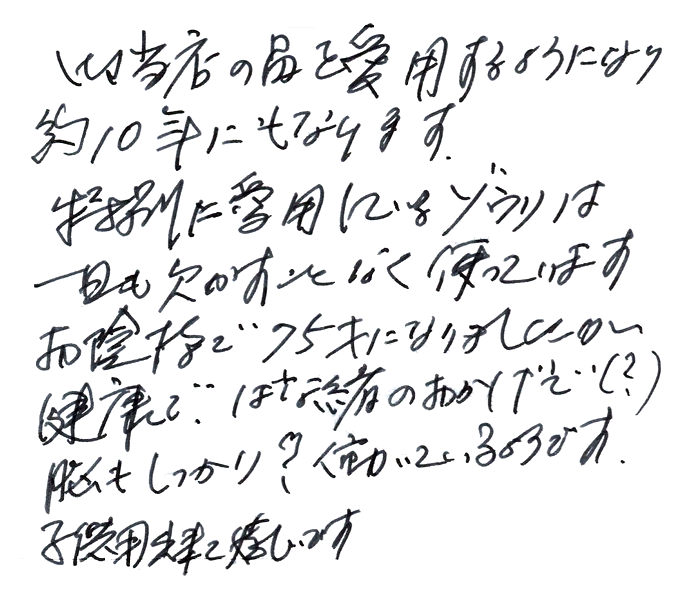 当店の品を愛用するようになり
約10年にもなります.
特別に愛用しているゾウリは
一日も欠かすことなく使っています
お陰様で75才になりましたが
健康で.はな緒のおかげで(?)
脳もしっかり?働いているようです.
子供用 です